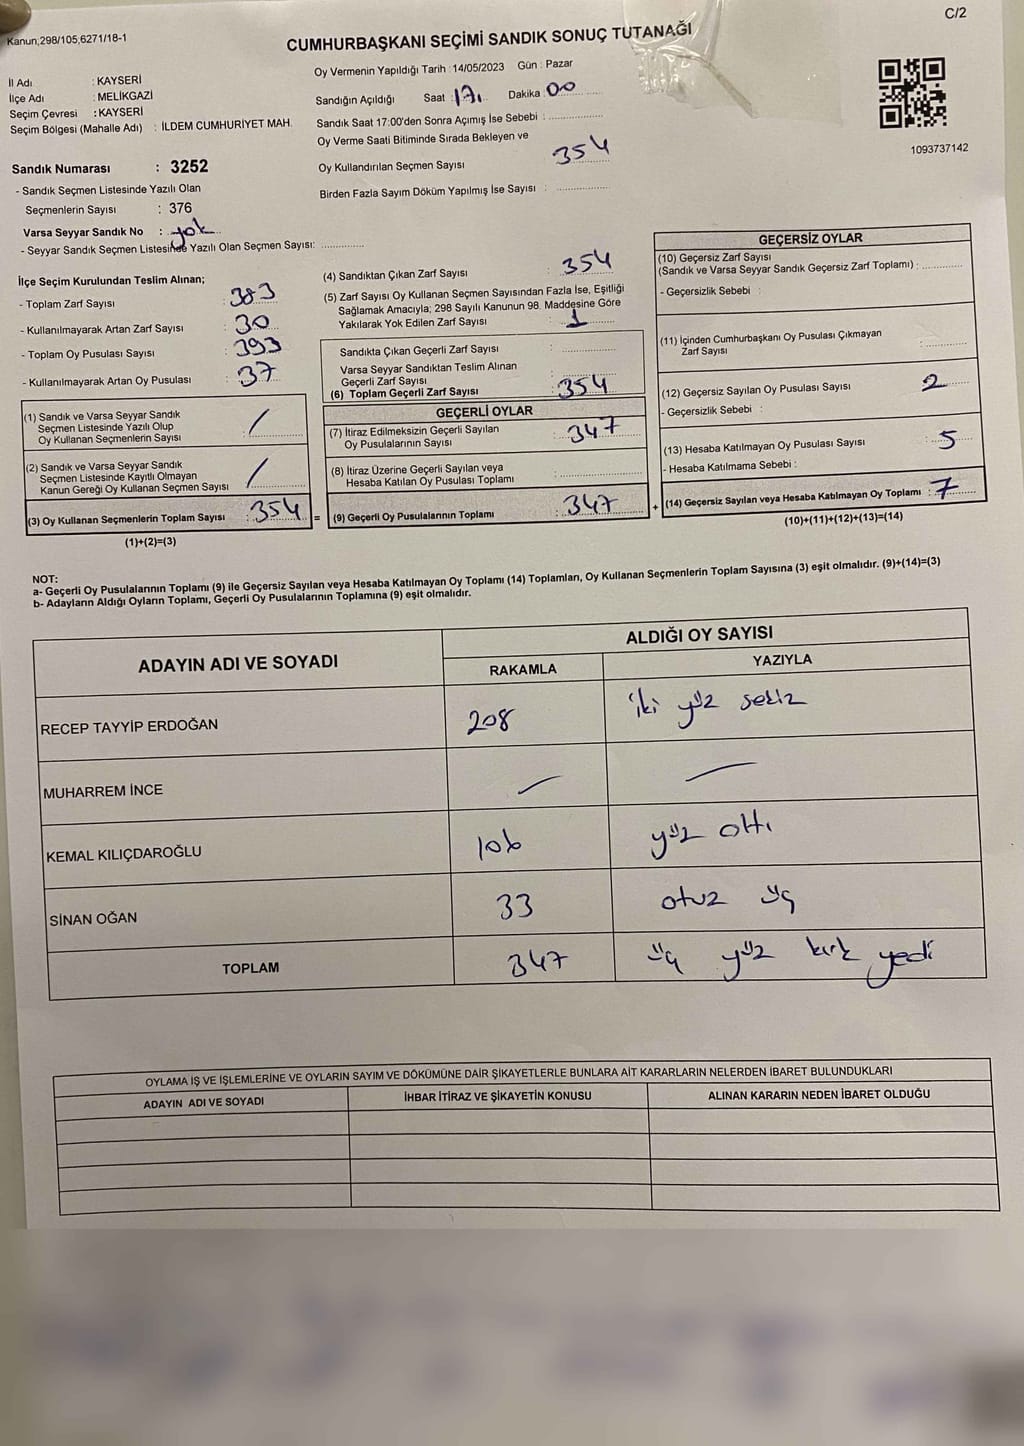 Kanun;298/105,6271/18-1
C/2
CUMHURBAŞKANI SEÇİMİ SANDIK SONUÇ TUTANAĞI
İl Adı : KAYSERİ
İlçe Adı : MELİKGAZİ
Seçim Çevresi : KAYSERİ
Seçim Bölgesi (Mahalle Adı) : İLDEM CUMHURİYET MAH.
Oy Vermenin Yapıldığı Tarih : 14/05/2023 Gün : Pazar
Sandığın Açıldığı Saat : 17. Dakika : 00
Sandık Saat 17:00'den Sonra Açımış İse Sebebi :
Oy Verme Saati Bitiminde Sırada Bekleyen ve
Oy Kullandırılan Seçmen Sayısı 354
Birden Fazla Sayım Döküm Yapılmış İse Sayısı :
1093737142
Sandık Numarası : 3252
- Sandık Seçmen Listesinde Yazılı Olan
Seçmenlerin Sayısı : 376
Varsa Seyyar Sandık No : yok
- Seyyar Sandık Seçmen Listesinde Yazılı Olan Seçmen Sayısı:
İlçe Seçim Kurulundan Teslim Alınan;
- Toplam Zarf Sayısı : 383
- Kullanılmayarak Artan Zarf Sayısı : 30
- Toplam Oy Pusulası Sayısı : 393
- Kullanılmayarak Artan Oy Pusulası : 37
(1) Sandık ve Varsa Seyyar Sandık
Seçmen Listesinde Yazılı Olup
Oy Kullanan Seçmenlerin Sayısı : /
(2) Sandık ve Varsa Seyyar Sandık
Seçmen Listesinde Kayıtlı Olmayan
Kanun Gereği Oy Kullanan Seçmen Sayısı : /
(3) Oy Kullanan Seçmenlerin Toplam Sayısı : 354 =
(1)+(2)=(3)
(4) Sandıktan Çıkan Zarf Sayısı : 354
(5) Zarf Sayısı Oy Kullanan Seçmen Sayısından Fazla İse, Eşitliği
Sağlamak Amacıyla; 298 Sayılı Kanunun 98. Maddesine Göre
Yakılarak Yok Edilen Zarf Sayısı : 1
Sandıkta Çıkan Geçerli Zarf Sayısı :
Varsa Seyyar Sandıktan Teslim Alınan
Geçerli Zarf Sayısı :
(6) Toplam Geçerli Zarf Sayısı : 354
GEÇERLİ OYLAR
(7) İtiraz Edilmeksizin Geçerli Sayılan
Oy Pusulalarının Sayısı : 347
(8) İtiraz Üzerine Geçerli Sayılan veya
Hesaba Katılan Oy Pusulası Toplamı :
(9) Geçerli Oy Pusulalarının Toplamı : 347 +
GEÇERSİZ OYLAR
(10) Geçersiz Zarf Sayısı
(Sandık ve Varsa Seyyar Sandık Geçersiz Zarf Toplamı) :
- Geçersizlik Sebebi :
(11) İçinden Cumhurbaşkanı Oy Pusulası Çıkmayan
Zarf Sayısı :
(12) Geçersiz Sayılan Oy Pusulası Sayısı : 2
- Geçersizlik Sebebi :
(13) Hesaba Katılmayan Oy Pusulası Sayısı : 5
- Hesaba Katılmama Sebebi :
(14) Geçersiz Sayılan veya Hesaba Katılmayan Oy Toplamı : 7
(10)+(11)+(12)+(13)=(14)
NOT:
a- Geçerli Oy Pusulalarının Toplamı (9) ile Geçersiz Sayılan veya Hesaba Katılmayan Oy Toplamı (14) Toplamları, Oy Kullanan Seçmenlerin Toplam Sayısına (3) eşit olmalıdır. (9)+(14)=(3)
b- Adayların Aldığı Oyların Toplamı, Geçerli Oy Pusulalarının Toplamına (9) eşit olmalıdır.
ADAYIN ADI VE SOYADI ALDIĞI OY SAYISI
RAKAMLA YAZIYLA
RECEP TAYYİP ERDOĞAN 208 iki yüz sekiz
MUHARREM İNCE — —
KEMAL KILIÇDAROĞLU 106 yüz altı
SİNAN OĞAN 33 otuz üç
TOPLAM 347 üç yüz kırk yedi
OYLAMA İŞ VE İŞLEMLERİNE VE OYLARIN SAYIM VE DÖKÜMÜNE DAİR ŞİKAYETLERLE BUNLARA AİT KARARLARIN NELERDEN İBARET BULUNDUKLARI
ADAYIN ADI VE SOYADI İHBAR İTİRAZ VE ŞİKAYETİN KONUSU ALINAN KARARIN NEDEN İBARET OLDUĞU